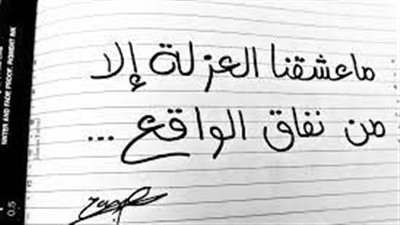 ماعشقنا العزلة إلا
من نفاق الواقع ...
WATER AND FADE PROOF, PIGMENT INK
0.5